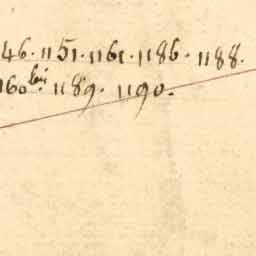 46. 1151. 1161. 1186. 1188.
160 bis. 1189. 1190.